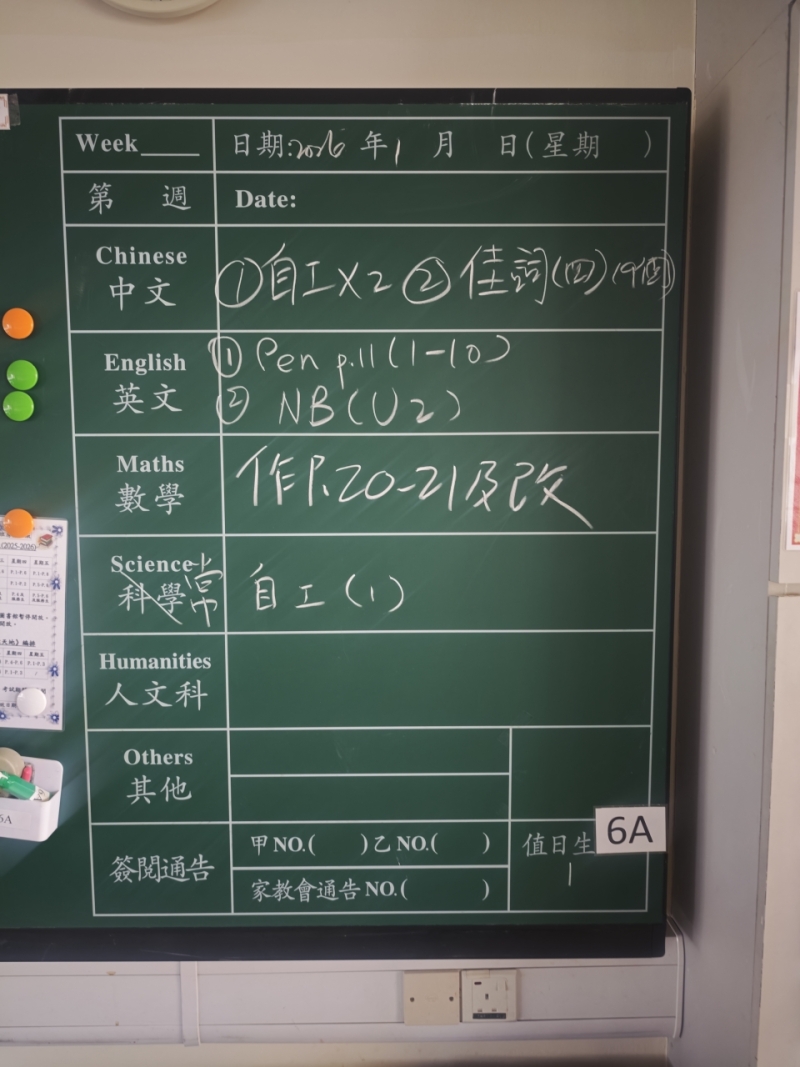 Week____ 日期:2026 年1 月 日(星期 )
第 週 Date:
Chinese
中文
①自工X2 ②佳詞(四)(9個)
English
英文
① Pen p.11(1-10)
② NB(U2)
Maths
數學
作P.20-21及改
Science
科學 常
自工(1)
Humanities
人文科
Others
其他
簽閱通告
甲NO.( )乙NO.( )
家教會通告NO.( )
值日生
1
6A
(2025-2026)
星期四 星期五